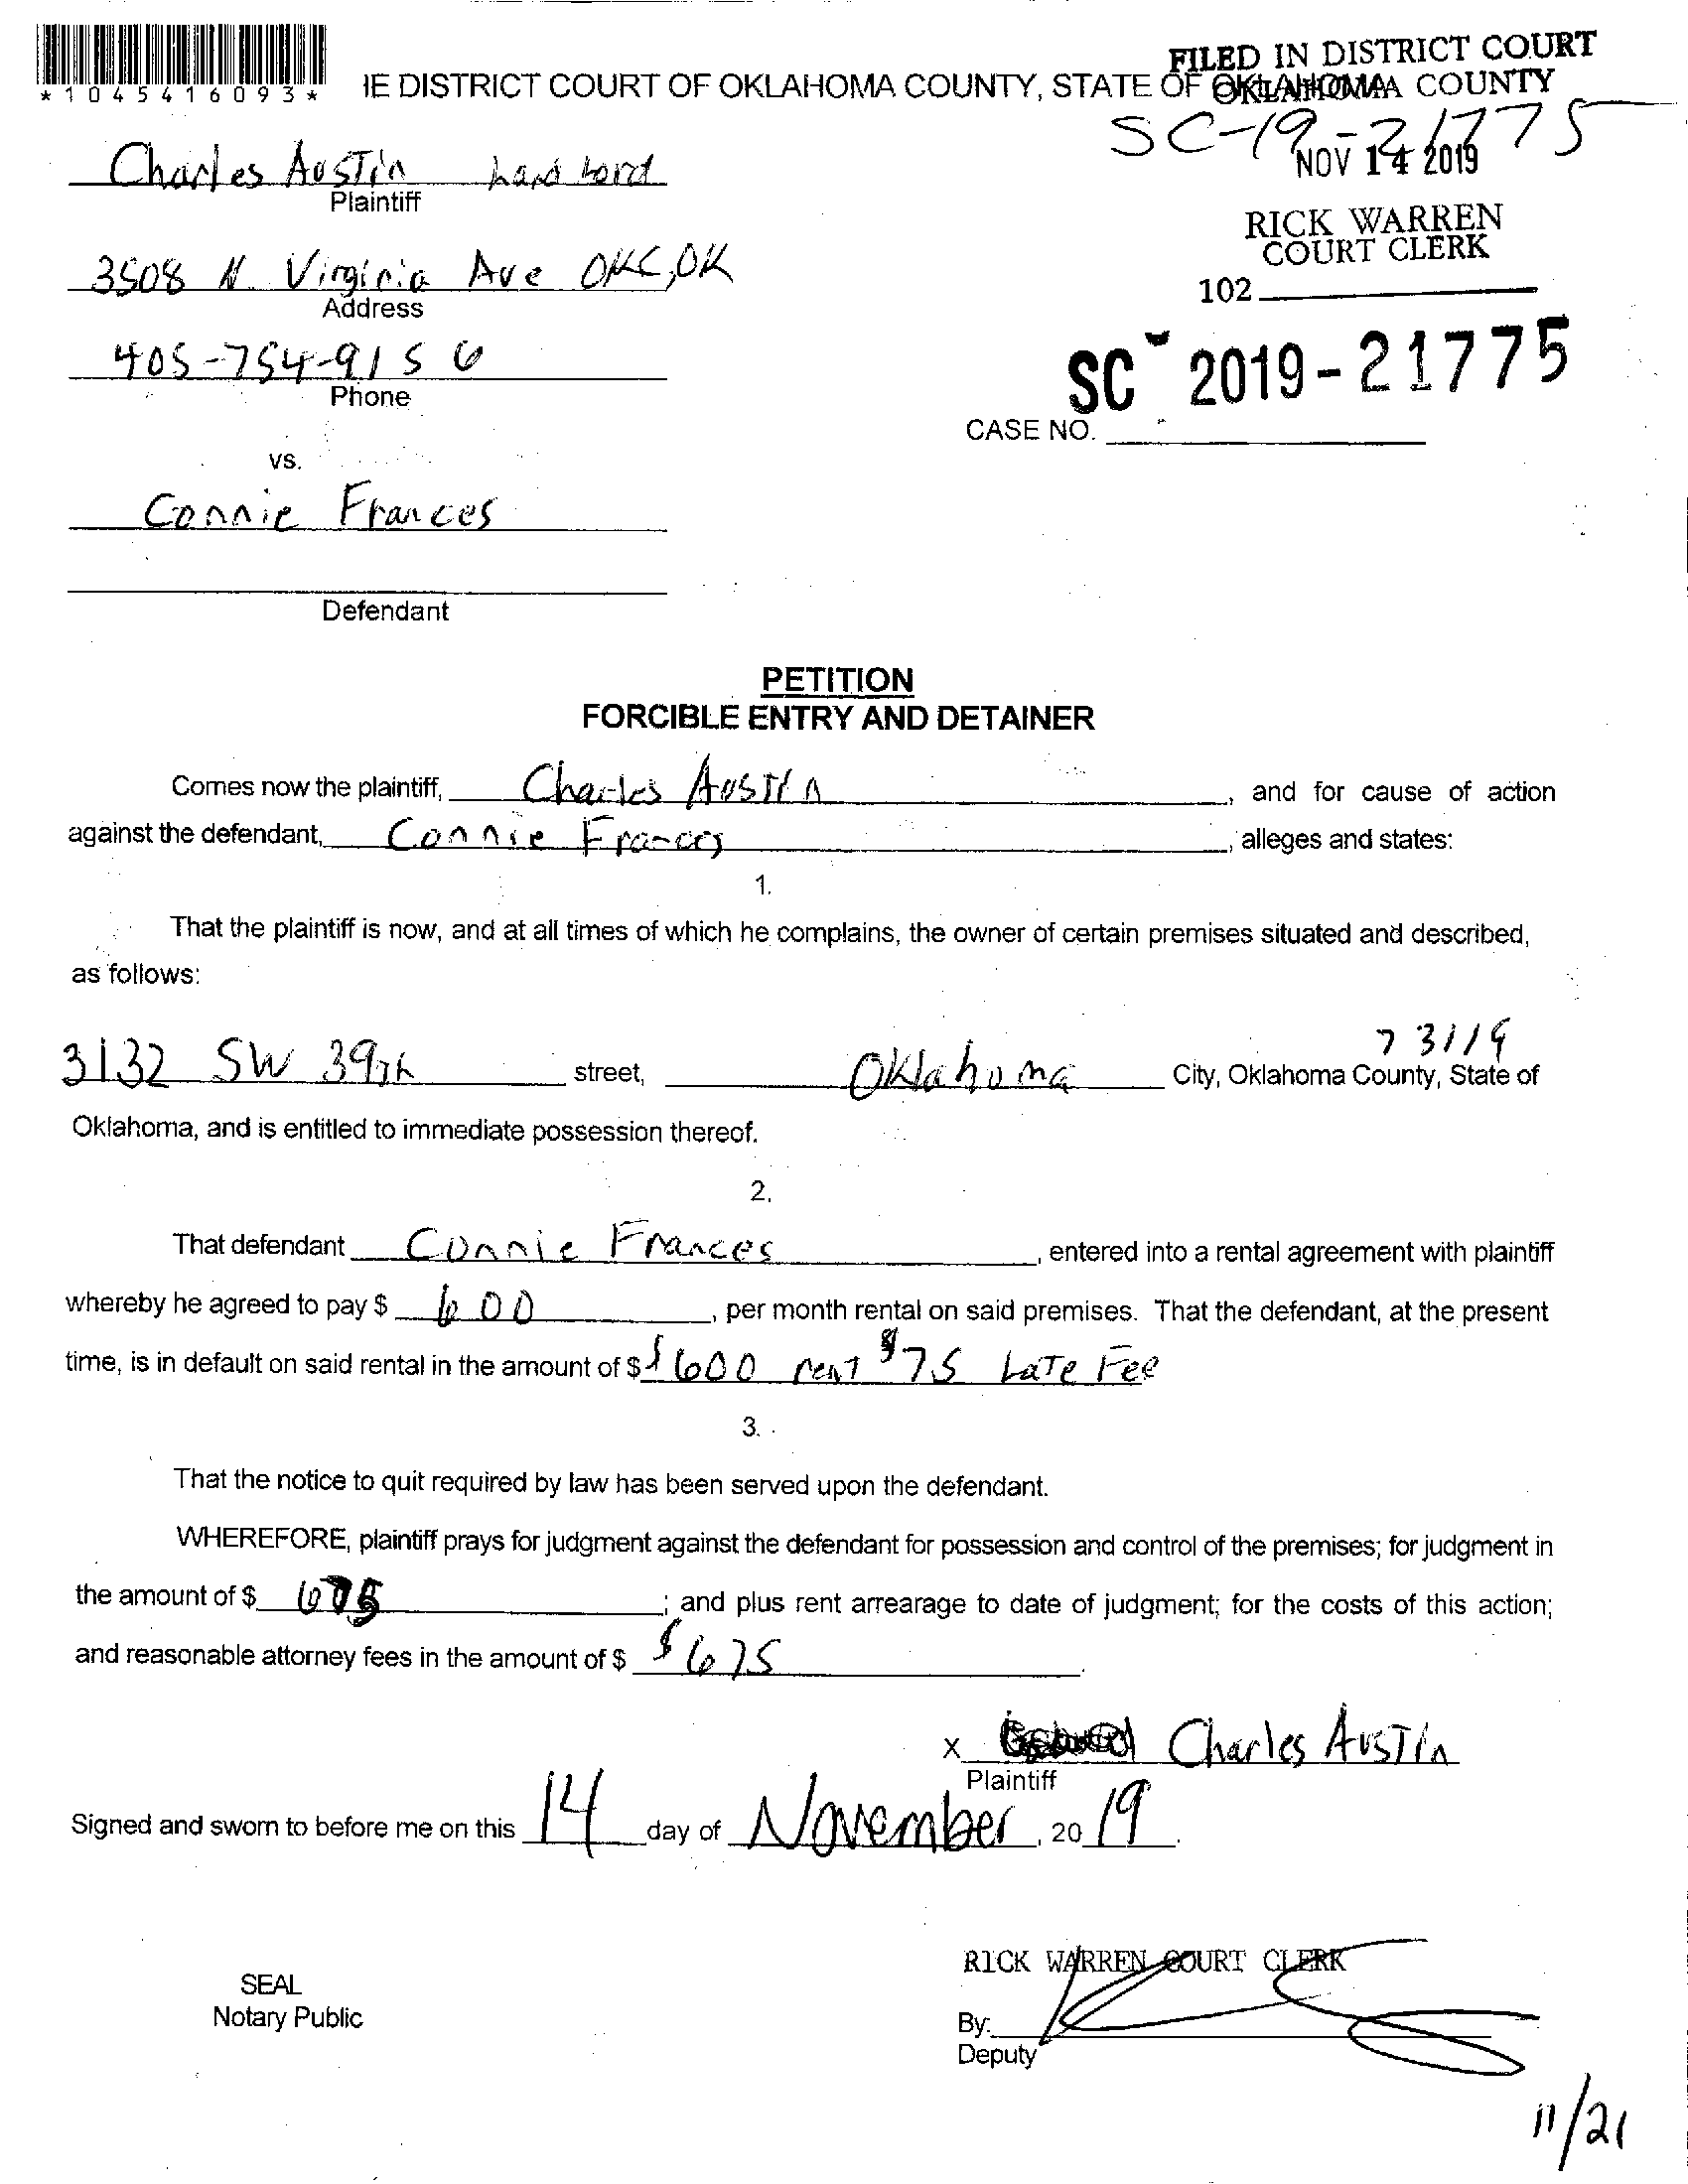 *1045416093*
IE DISTRICT COURT OF OKLAHOMA COUNTY, STATE OF OKLAHOMA
FILED IN DISTRICT COURT
OKLAHOMA COUNTY
SC-19-21775
NOV 14 2019
RICK WARREN
COURT CLERK
102
SC 2019-21775
CASE NO.
Charles Austin Land Lord
Plaintiff
3508 N. Virginia Ave OKC, OK
Address
405-754-9156
Phone
vs.
Connie Frances
Defendant
PETITION
FORCIBLE ENTRY AND DETAINER
Comes now the plaintiff, Charles Austin, and for cause of action
against the defendant, Connie Frances, alleges and states:
1.
That the plaintiff is now, and at all times of which he complains, the owner of certain premises situated and described,
as follows:
73119
3132 SW 39th street, Oklahoma City, Oklahoma County, State of
Oklahoma, and is entitled to immediate possession thereof.
2.
That defendant Connie Frances, entered into a rental agreement with plaintiff
whereby he agreed to pay $ 600, per month rental on said premises. That the defendant, at the present
time, is in default on said rental in the amount of $ $600 rent $75 Late Fee
3.
That the notice to quit required by law has been served upon the defendant.
WHEREFORE, plaintiff prays for judgment against the defendant for possession and control of the premises; for judgment in
the amount of $ 675; and plus rent arrearage to date of judgment; for the costs of this action;
and reasonable attorney fees in the amount of $ $675.
x Charles Austin
Plaintiff
Signed and sworn to before me on this 14 day of November, 2019.
RICK WARREN COURT CLERK
SEAL
Notary Public
By:
Deputy
11/21